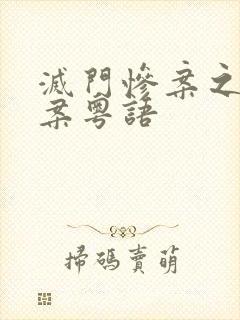 滅門慘案之
案粵語
掃碼賣萌